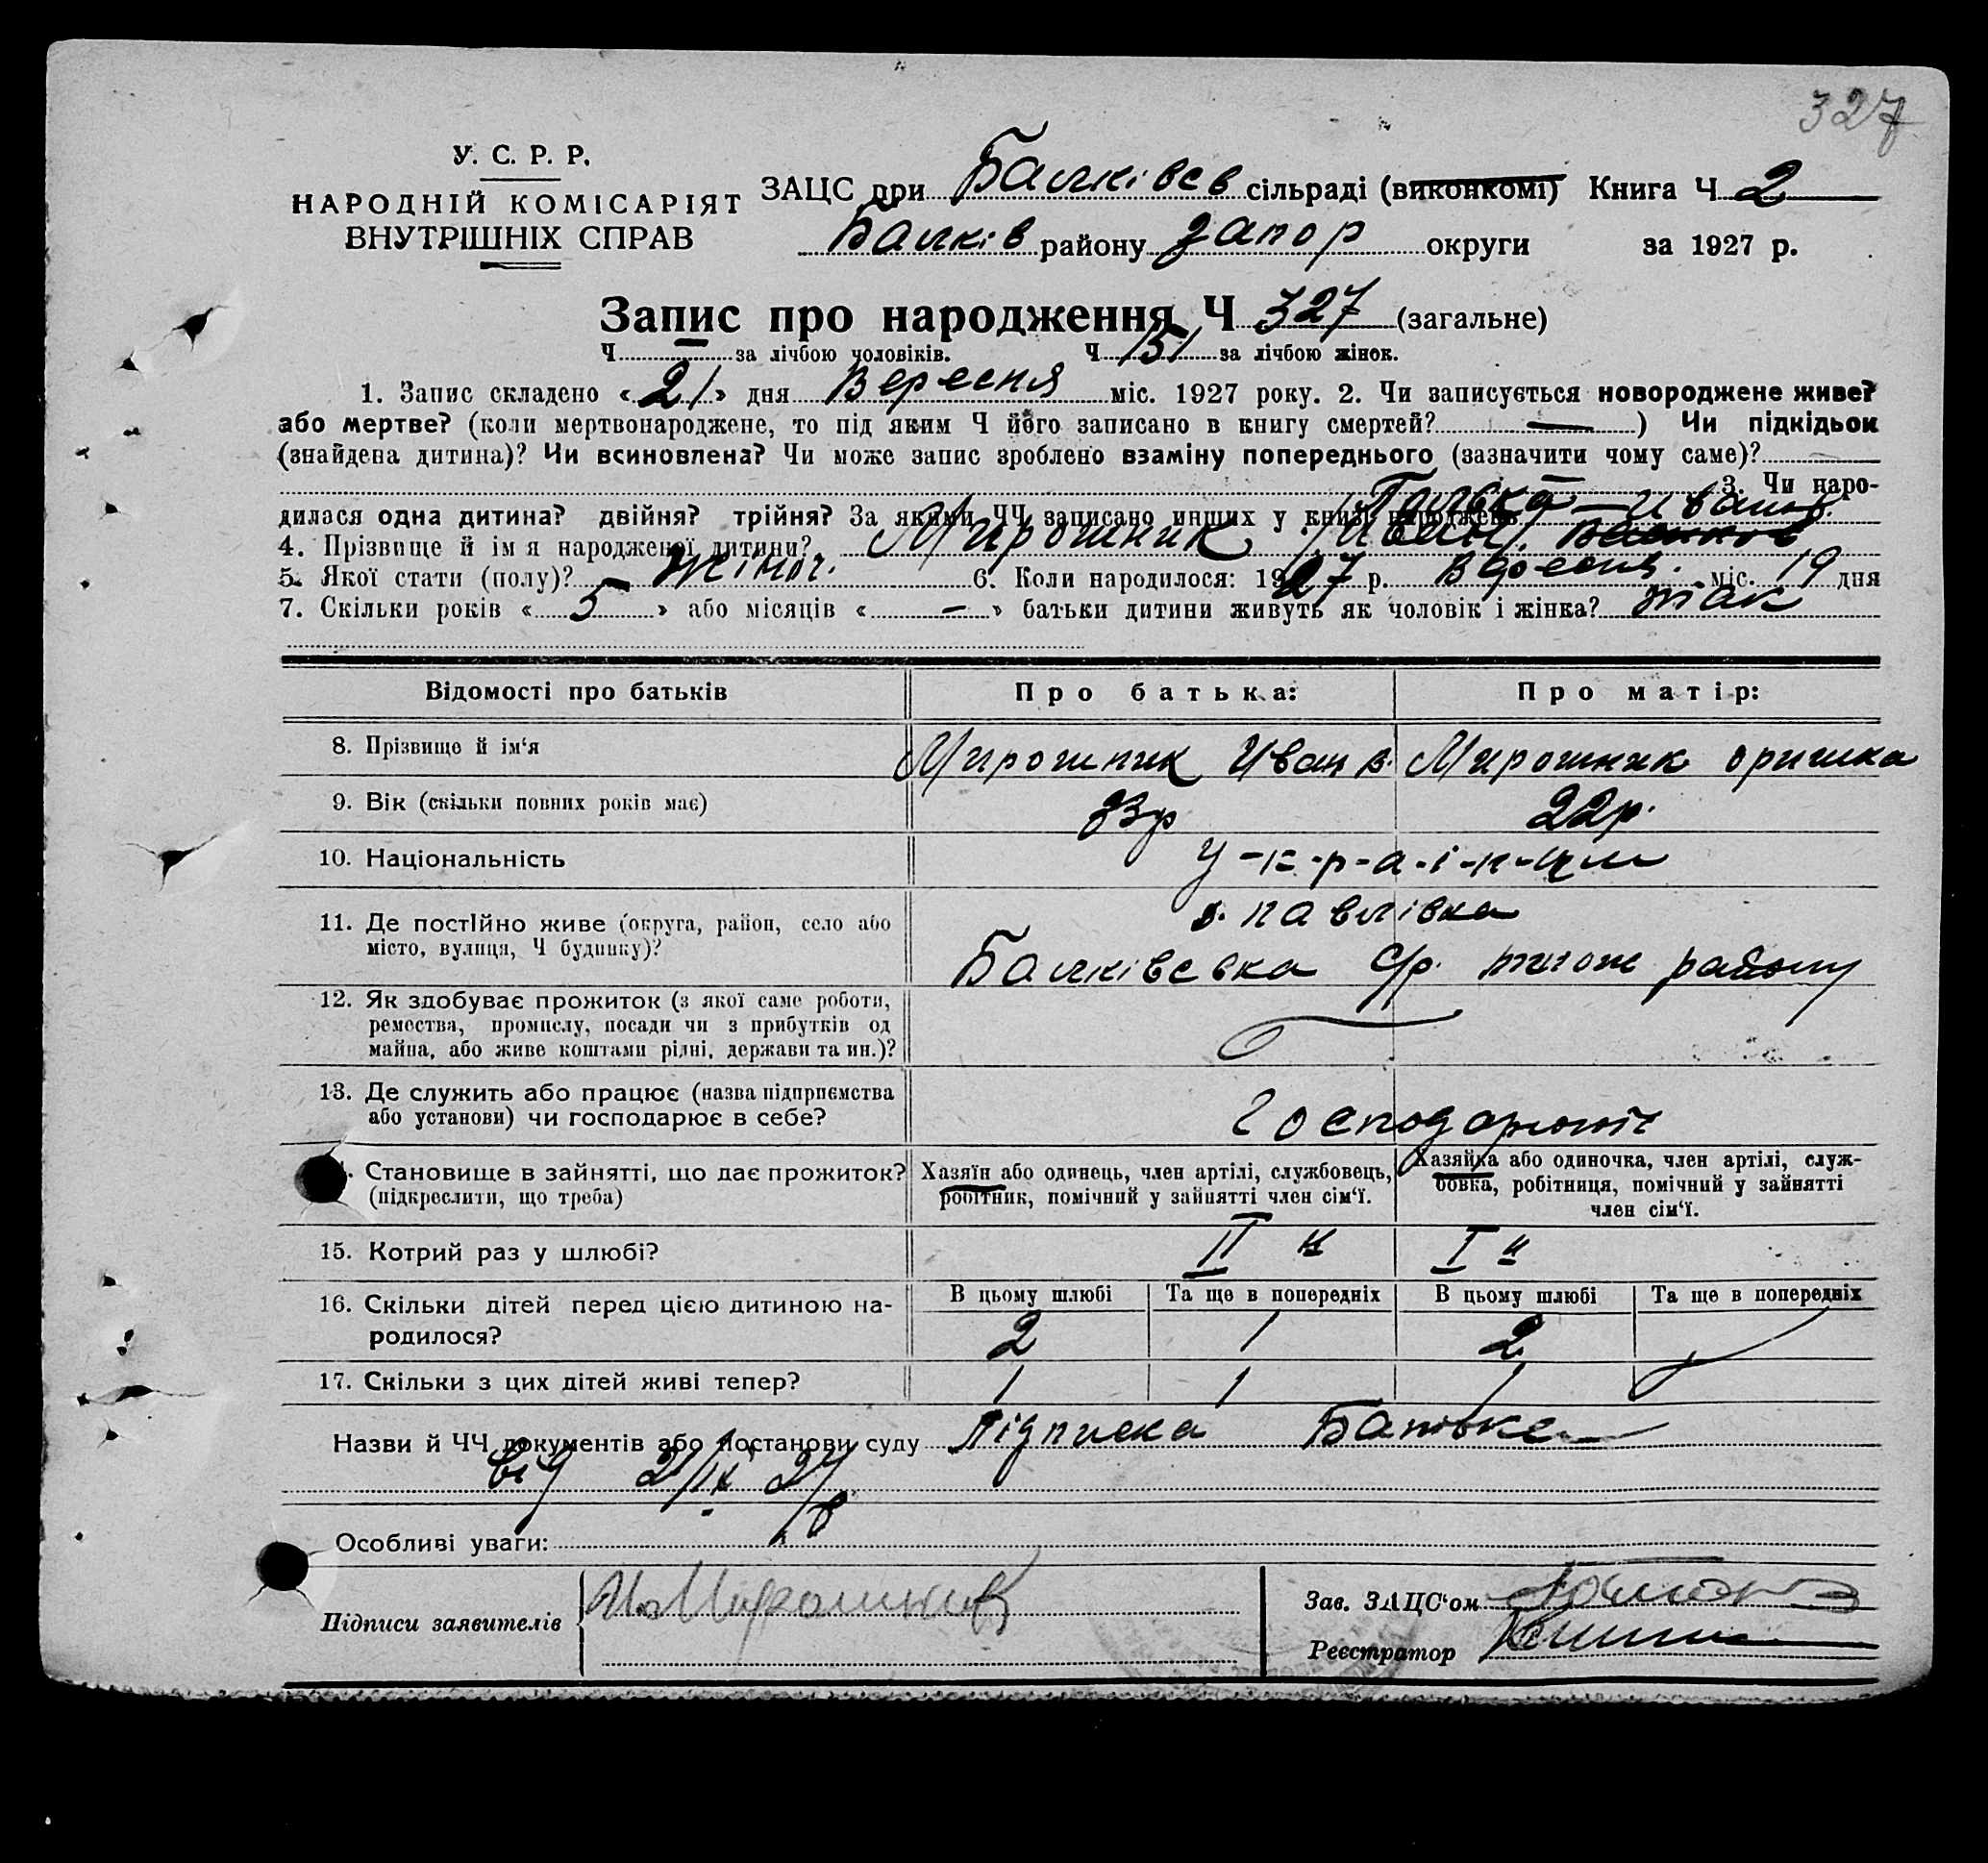 327
У. С. Р. Р.
НАРОДНІЙ КОМІСАРІЯТ
ВНУТРІШНІХ СПРАВ
ЗАЦС при Балківсв сільраді (виконкомі) Книга Ч 2
Балків району Запор округи за 1927 р.
Запис про народження Ч 327 (загальне)
Ч — за лічбою чоловіків. Ч 151 за лічбою жінок.
1. Запис складено «21» дня Вересня міс. 1927 року. 2. Чи записується новороджене живе?
або мертве? (коли мертвонароджене, то під яким Ч його записано в книгу смертей? — ) Чи підкідьок
(знайдена дитина)? Чи всиновлена? Чи може запис зроблено взаміну попереднього (зазначити чому саме)?
— 3. Чи наро-
дилася одна дитина? двійня? трійня? За якими ЧЧ записано инших у книзі народжень
4. Прізвище й ім я народженої дитини? Мирошник
5. Якої стати (полу)? Жіноч. 6. Коли народилося: 1927 р. Вересня. міс. 19 дня
7. Скільки років « 5 » або місяців « — » батьки дитини живуть як чоловік і жінка? так
Відомості про батьків Про батька: Про матір:
8. Прізвище й ім'я Мирошник Иван В. Мирошник Оришка
9. Вік (скільки повних років має) 33р 22р.
10. Національність У-к-р-а-ї-н-ци
11. Де постійно живе (округа, район, село або с. Павлівка
місто, вулиця, Ч будинку)? Балківська с/р. тиєж району
12. Як здобуває прожиток (з якої саме роботи,
ремества, промислу, посади чи з прибутків од
майна, або живе коштами рідні, держави та ин.)?
13. Де служить або працює (назва підприємства
або установи) чи господарює в себе? Господарюють
Становище в зайнятті, що дає прожиток? Хазяїн або одинець, член артілі, службовець, Хазяйка або одиночка, член артілі, служ-
(підкреслити, що треба) робітник, помічний у зайнятті член сім'ї. бовка, робітниця, помічний у зайнятті
член сім'ї.
15. Котрий раз у шлюбі? II й I й
16. Скільки дітей перед цією дитиною на- В цьому шлюбі Та ще в попередніх В цьому шлюбі Та ще в попередніх
родилося? 2 1 2
17. Скільки з цих дітей живі тепер? 1 1 1
Назви й ЧЧ документів або постанови суду Підписка Батька
від 21/IX 27
Особливі уваги:
Підписи заявителів И. Мирошник Зав. ЗАЦС'ом
Реєстратор